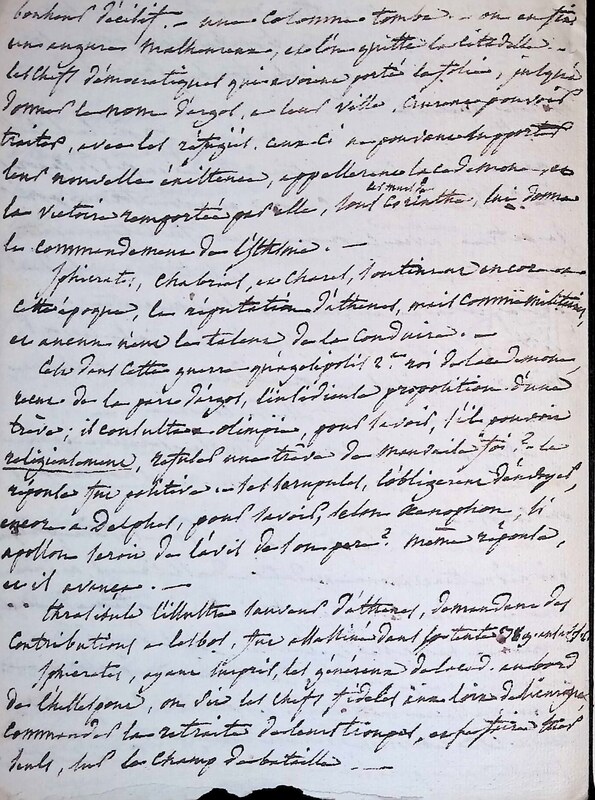 bonheur décisif. — une colonne tombe. — on en fait
un augure malheureux, et l'on quitte la citadelle. —
les chefs démocratiques qui avoient porté la folie, jusqu'à
donner le nom d'argos, a leur ville, crurent pouvoir
traiter, avec les réfugiés. ceux-ci ne pouvant supporter
leur nouvelle existence, appellerent lacedemone, et
la victoire remportée par elle, sous les murs de Corinthe, lui donna
le commandement de l'isthme. —
Iphicrates, Chabrias, et Chares, soutinrent encore a
cette époque, la réputation d'athenes, mais comme militaires,
et aucun n'eut les talens de la conduire. —
C'est dans cette guerre qu'agesipolis 2.e roi de lacedemone,
recut de la part d'argos, l'insidieuse proposition d'une
trève; il consulta olimpie, pour savoir, s'il pouvoit
religieusement, refuser une trève de mauvaise foi? la
réponse fut positive. — ses scrupules, l'obligerent d'envoyer,
encore a Delphes, pour savoir, selon Xenophon, si
apollon seroit de l'avis de son pere? même réponse,
et il avança. —
thrasibule l'illustre sauveur d'athenes, demandant des
contributions a lesbos, fut assassiné dans sa tente
Iphicrates, ayant surpris, les généraux de laced. au bord
de l'hellespont, on vit les chefs fidèles aux loix de lycurgue,
commander la retraite de leurs troupes, et se faire tuer
seuls, sur le champ de bataille. —